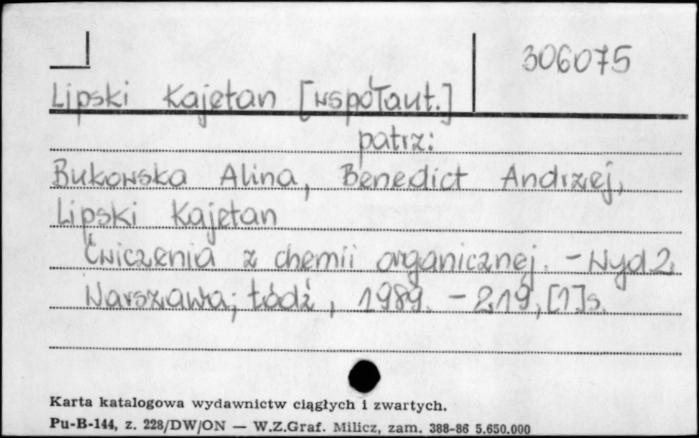 306075
Lipski Kajetan [współaut.]
patrz:
Bukowska Alina, Benedict Andrzej,
Lipski Kajetan
Ćwiczenia z chemii organicznej. - Wyd 2
Warszawa; Łódź, 1989. - 219, [1] s.
Karta katalogowa wydawnictw ciągłych i zwartych.
Pu-B-144, z. 228/DW/ON — W.Z.Graf. Milicz, zam. 388-86 5.650.000